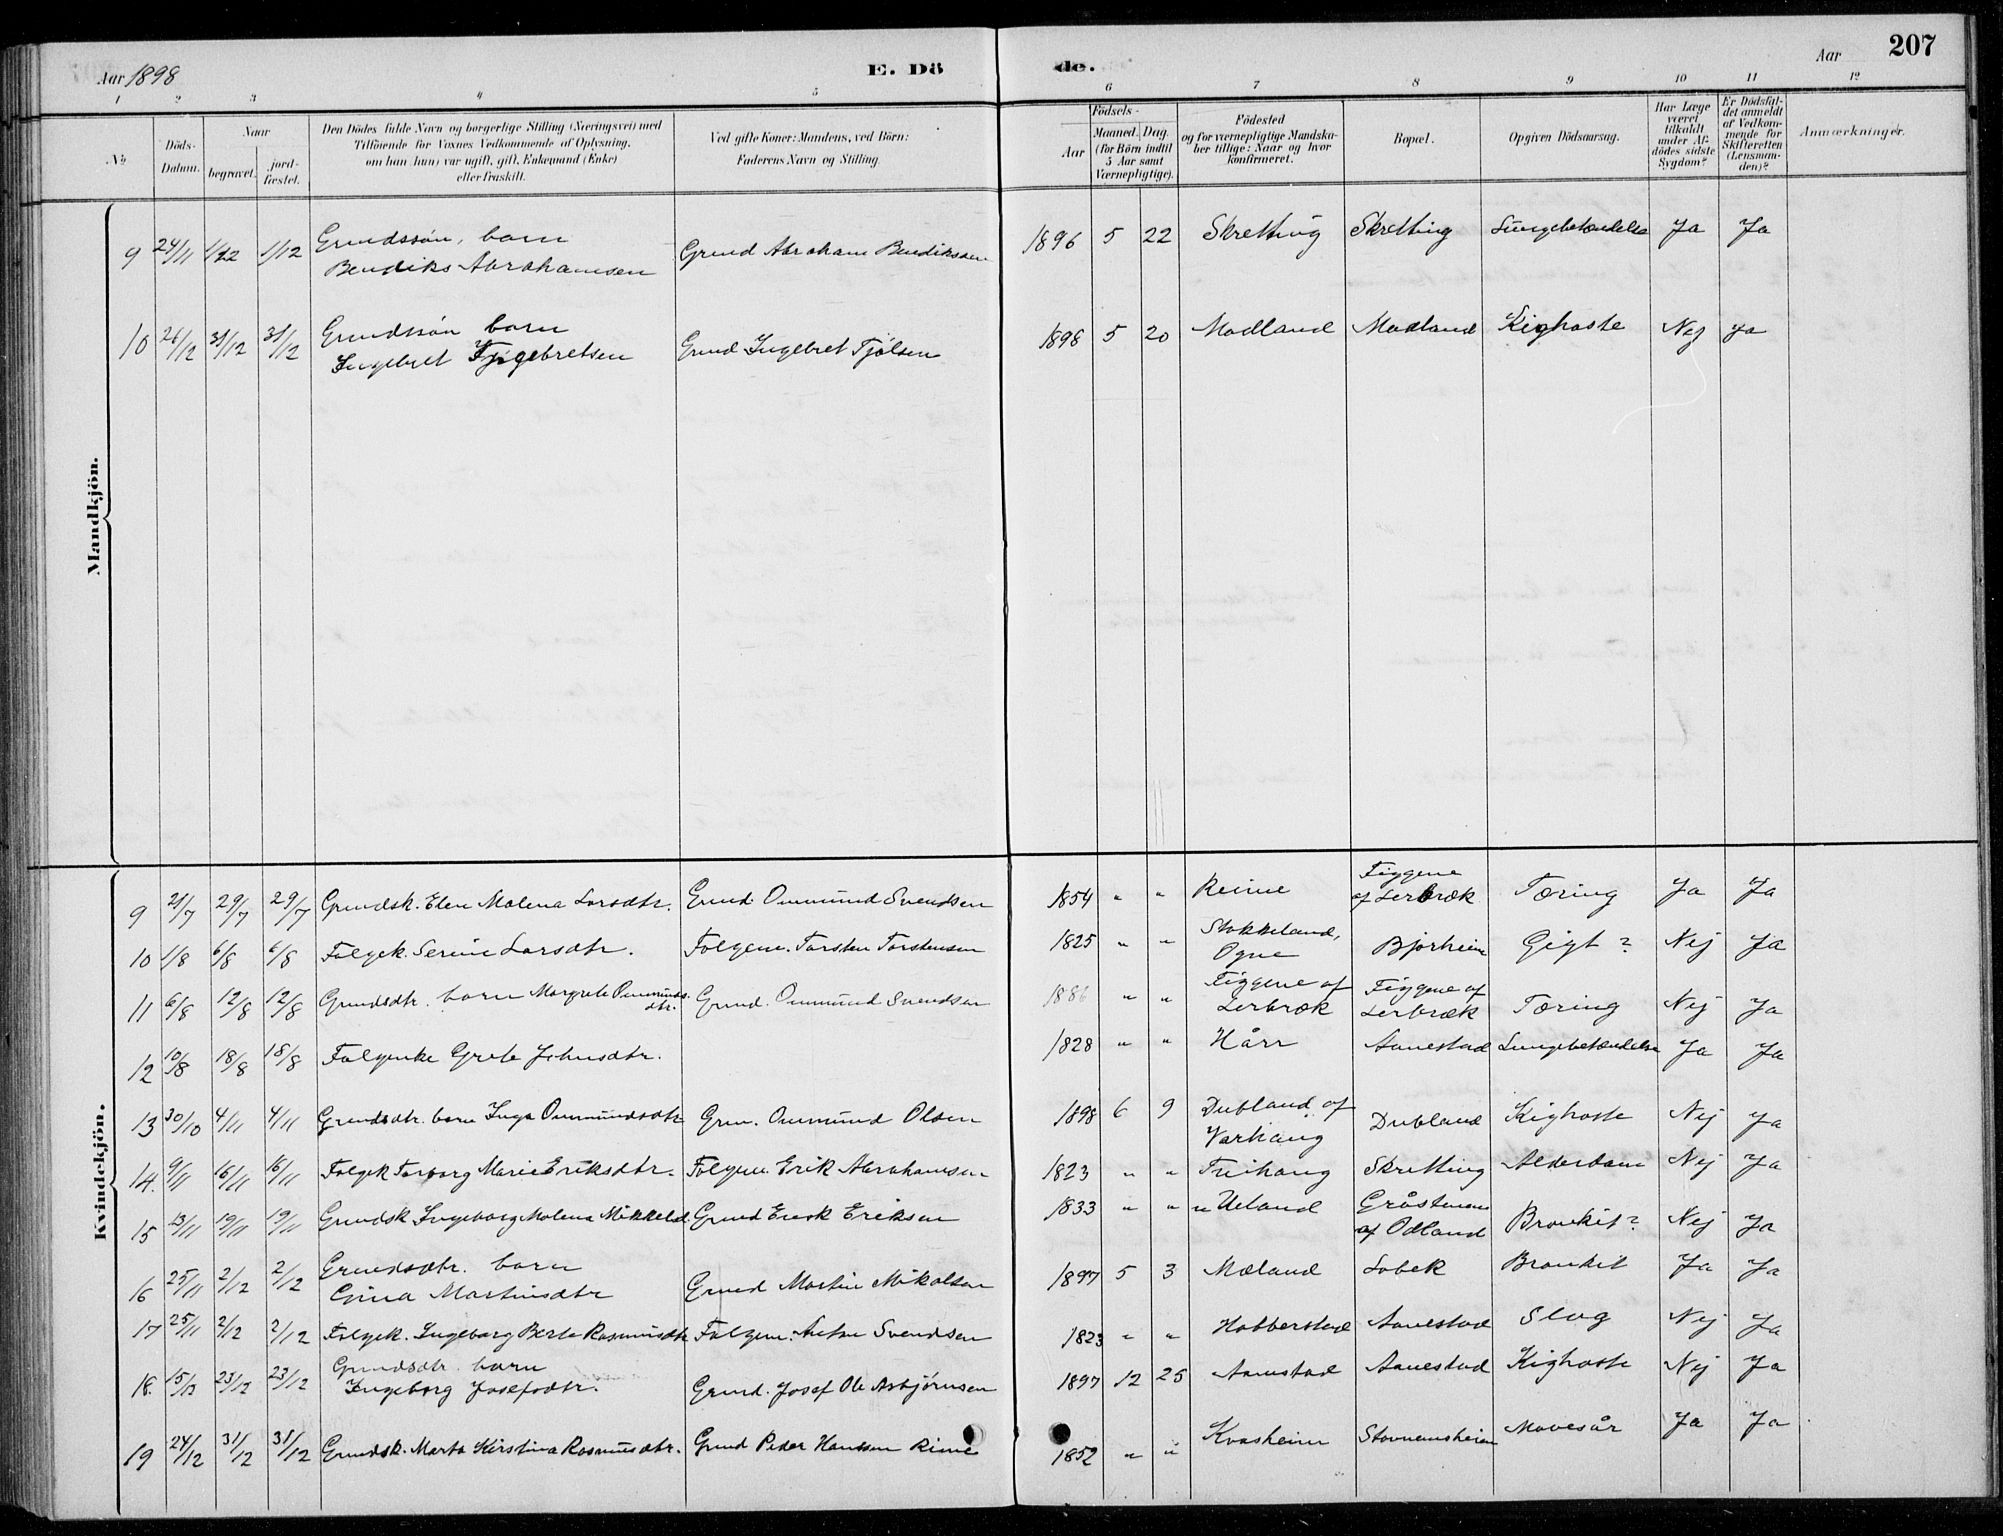 Aar 1898
E. Dö
de.
Aar
207
1 2 3 4 5 6 7 8 9 10 11 12
№
Döds-
Datum.
Naar
begravet.
jord-
fæstet.
Den Dödes fulde Navn og borgerlige Stilling (Næringsvei) med
Tilföiende for Voxnes Vedkommende af Oplysning,
om han (hun) var ugift, gift, Enkemand (Enke)
eller fraskilt.
Ved gifte Koner: Mandens, ved Börn:
Faderens Navn og Stilling.
Födsels-
Aar
Maaned. Dag.
(for Börn indtil
5 Aar samt
Værnepligtige).
Födested
og for værnepligtige Mandska-
ber tillige: Naar og hvor
konfirmeret.
Bopæl.
Opgiven Dödsaarsag.
Har Læge
været
tilkaldt
under Af-
dödes sidste
Sygdom?
Er Dödsfal-
det anmeldt
af Vedkom-
mende for
Skifteretten
(Lensman-
den)?
Anmærkninger.
Mandkjön.
9 24/11 1/12 1/12 Grundssön, barn
Bendiks Abrahamsen Grmd Abraham Bendiksen 1896 5 22 Skretting Skretting Lungebetændelse Ja Ja
10 26/12 31/12 31/12 Grundssön barn
Ingebret Ingebretsen Grmd Ingebret Tjölsen 1898 5 20 Modland Modland Kighoste Nej Ja
Kvindekjön.
9 21/7 29/7 29/7 Grmdsk. Elen Malena Larsdtr. Grmd. Ommund Svendsen 1854 " " Reime Figgene
af Lerbræk Tæring Ja Ja
10 1/8 6/8 6/8 Folgek. Serine Larsdtr. Folgem. Torsten Torstensen 1825 " " Stokkeland,
Ogne Bjorheim Gigt? Nej Ja
11 6/8 12/8 12/8 Grmdsdtr. barn Margrete Ommunds-
dtr. Grmd. Ommund Svendsen 1886 " " Figgene af
Lerbræk Figgene af
Lerbræk Tæring Nej Ja
12 10/8 18/8 18/8 Folgenke Grete Johnsdtr. 1828 " " Hårr Aanestad Lungebetændelse Ja Ja
13 30/10 4/11 4/11 Grmdsdtr. barn Inga Ommundsdtr Grm. Ommund Olsen 1898 6 9 Dubland af
Varhaug Dubland Kighoste Nej Ja
14. 9/11 16/11 16/11 Folgek Torborg Marie Eriksdtr. Folgem. Erik Abrahamsen 1823 " " Tuihaug Skretting Alderdom Nej Ja
15 13/11 19/11 19/11 Grmdsk Ingeborg Malena Mikkelsd Grmd Enok Eriksen 1833 " " Ueland Gråstenens
af Odland Bronkit? Nej Ja
16 25/11 2/12 2/12 Grmdsdtr. barn
Gina Martinsdtr Grmd Martin Mikalsen 1897 5 3 Mæland Lobek Bronkit Ja Ja
17 25/11 2/12 2/12 Folgek. Ingeborg Berta Rasmusdtr Folgem. Anton Svendsen 1823 " " Hobberstad Aanestad Slag Nej Ja
18. 15/12 23/12 23/12 Grmdsdtr. barn
Ingeborg Josefsdtr. Grmd. Josef Ole Asbjörnsen 1897 12 25 Aanestad Aanestad Kighoste Nej Ja
19 24/12 31/12 31/12 Grmdsk. Marta Kirstina Rasmusdtr. Grmd Peder Hansen Rime 1852 " " Kvasheim Stavnemsheien Mavesår Ja Ja